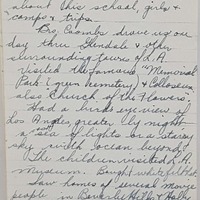 about this school, girls &
camps & trips.
Bro. Coombs drove us one
day thru Glendale & other
surrounding towns of L.A.
Visited the famous "Memorial
Park (green cemetery) & Colloseum
also Church of the Flowers.
Had a birds eye view of
Los Angeles greater by night
a sea of lights or a starry
sky with ocean beyond
The children visited L.A.
Museum. Bought white
Saw homes of several movie
people in Beverly Hills & Holly